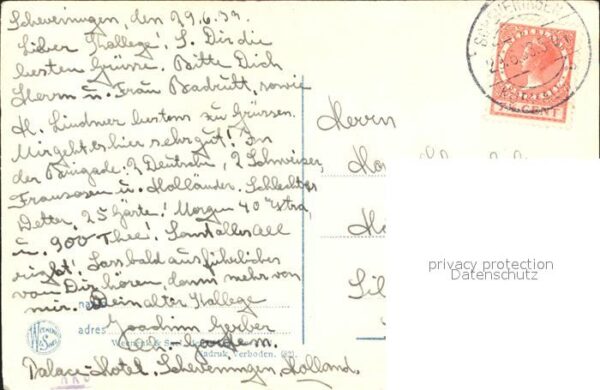 Scheveningen, den 29.6.33.
Lieber Kollege! S. Dir die
besten Grüsse. Bitte Dich
Herrn u. Frau Badrutt, sowie
H. Lindner bestens zu Grüssen.
Mir geht es hier sehr gut! In
der Brigade: 2 Deutsche, 2 Schweizer,
Fransosen u. Holländer. Schlechtes
Wetter, 25 Gäste! Morgen 40 extra
u. 900 Thee! Sonst alles all
right! Lass bald ausführliches
von Dir hören, dann mehr von
mir. Dein alter Kollege
Joachim Gerber
Palace-Hotel. Scheveningen, Holland.
Herrn
adres:
Weenenk &
Nadruk Verboden.
WEENENK
CENT
privacy protection
Datenschutz